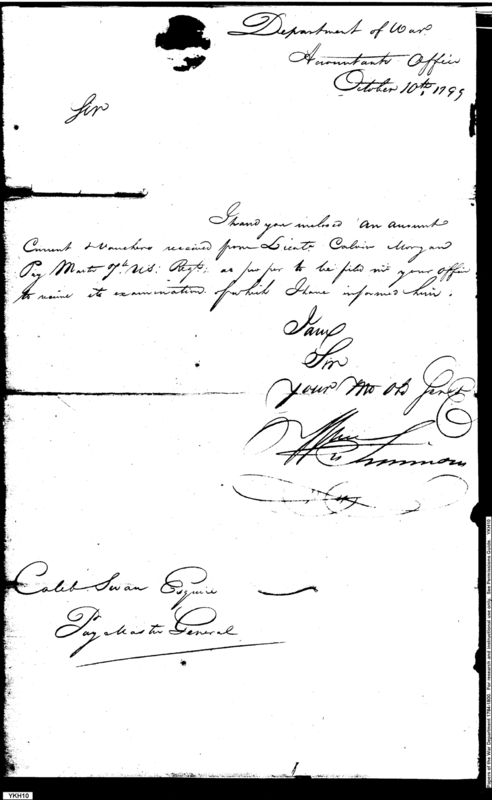 Department of War
Accountants Office
October 10th, 1799
Sir
I hand you inclosed an account
Current & Vouchers received from Lieut. Calvin Morgan
Pay Mastr 7th US. Regt. as proper to be filed in your office
to its examination of which I have informed him.
I am
Sir
your Mo Ob Servt
Wm Simmons
Caleb Swan Esquire
Pay Master General
YKH10
Papers of the War Department 1784-1800. For research and instructional use only. See Permissions Guide. YKH10